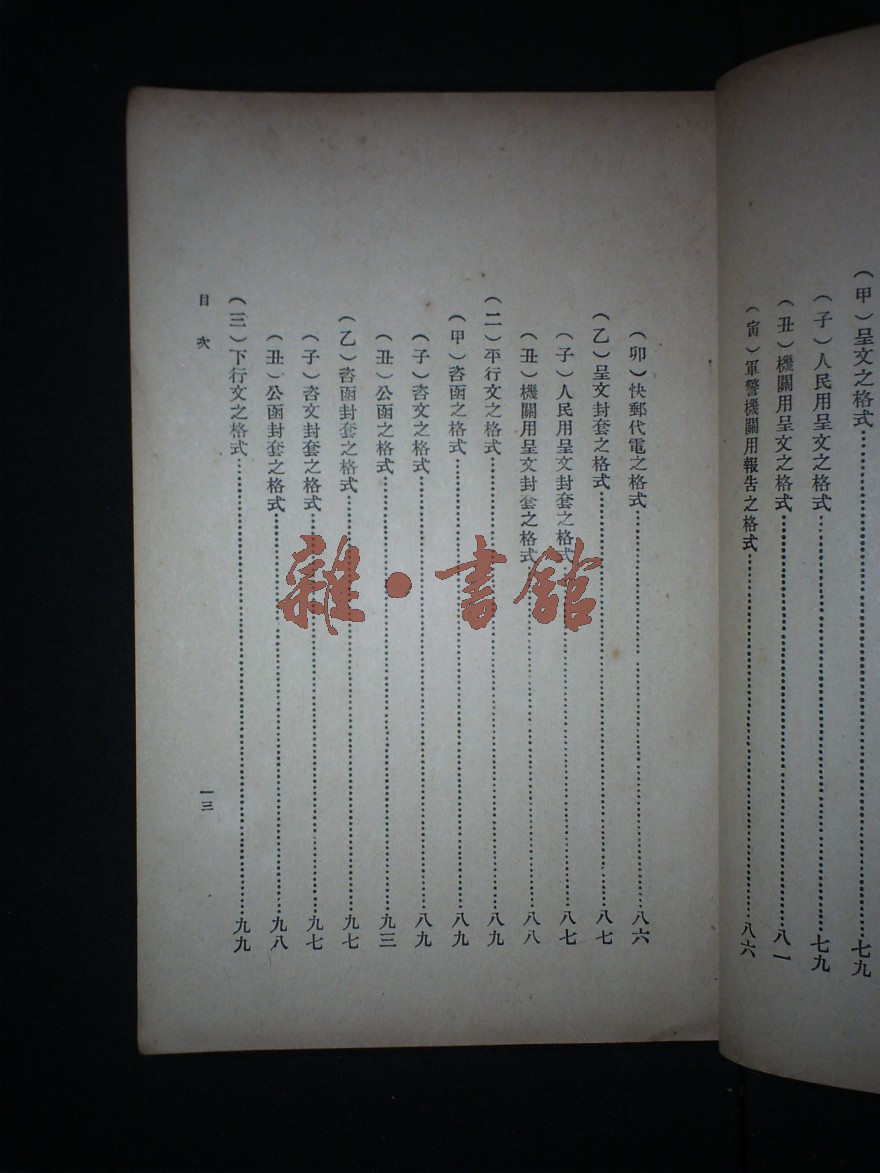 （甲）呈文之格式……七九
（子）人民用呈文之格式……七九
（丑）機關用呈文之格式……八一
（寅）軍警機關用報告之格式……八六
（卯）快郵代電之格式……八六
（乙）呈文封套之格式……八七
（子）人民用呈文封套之格式……八七
（丑）機關用呈文封套之格式……八八
（二）平行文之格式……八九
（甲）咨函之格式……八九
（子）咨文之格式……八九
（丑）公函之格式……九三
（乙）咨函封套之格式……九七
（子）咨文封套之格式……九七
（丑）公函封套之格式……九八
（三）下行文之格式……九九
目次
一三
雜·書館